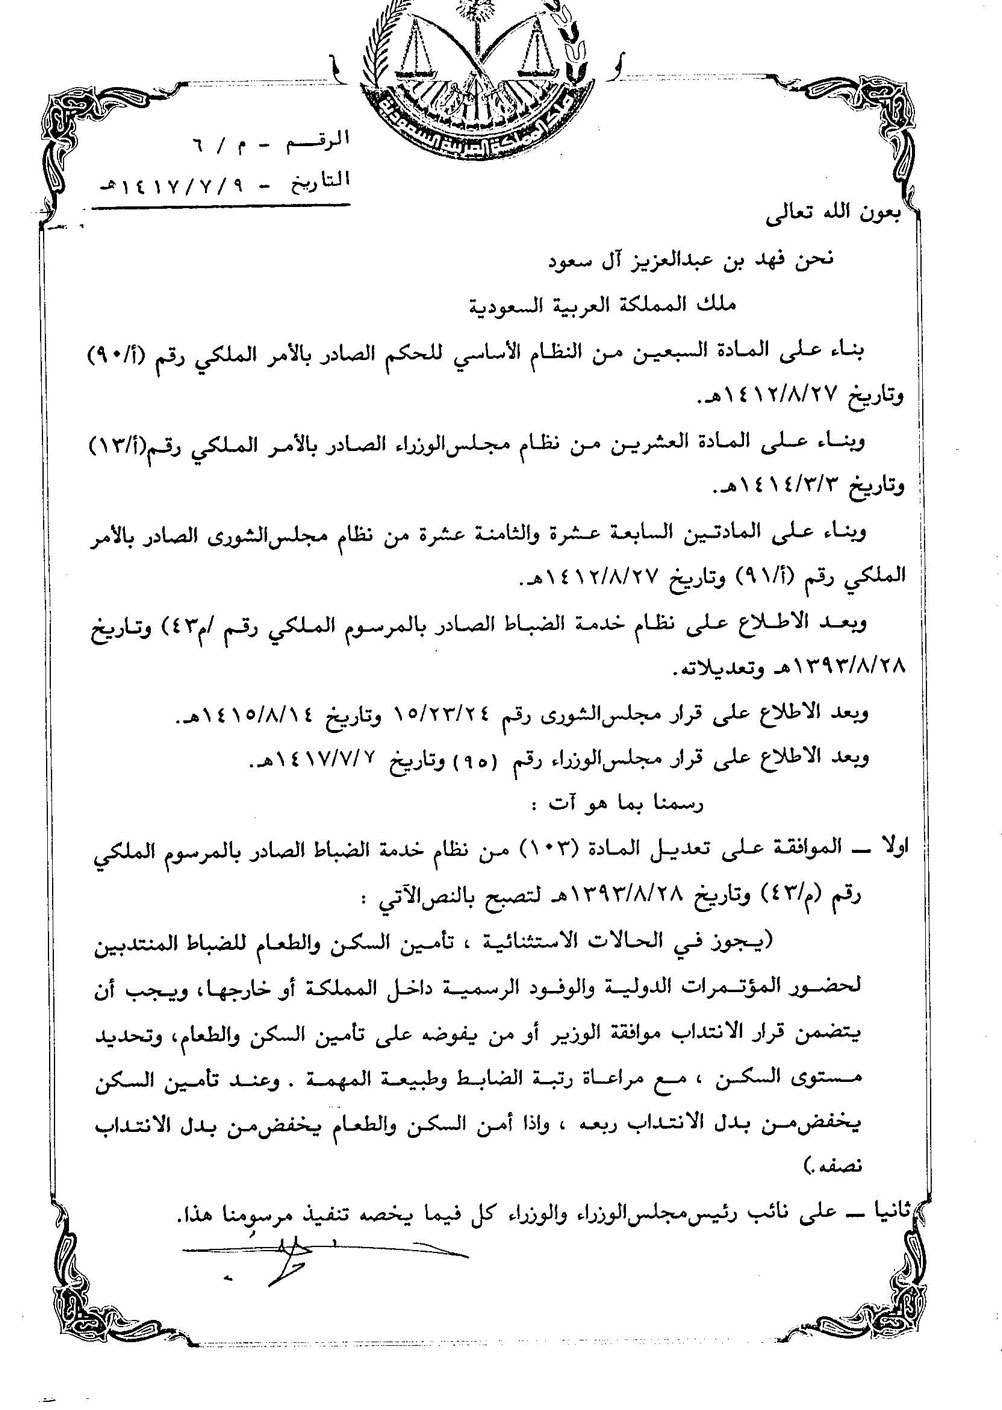 ملك المملكة العربية السعودية
الرقـــم - م / ٦
التاريخ - ١٤١٧/٧/٩هـ
بعون الله تعالى
نحن فهد بن عبدالعزيز آل سعود
ملك المملكة العربية السعودية
بناء على المادة السبعين من النظام الأساسي للحكم الصادر بالأمر الملكي رقم (أ/٩٠)
وتاريخ ١٤١٢/٨/٢٧هـ.
وبناء على المادة العشرين من نظام مجلس الوزراء الصادر بالأمر الملكي رقم(أ/١٣)
وتاريخ ١٤١٤/٣/٣هـ.
وبناء على المادتين السابعة عشرة والثامنة عشرة من نظام مجلس الشورى الصادر بالأمر
الملكي رقم (أ/٩١) وتاريخ ١٤١٢/٨/٢٧هـ.
وبعد الاطلاع على نظام خدمة الضباط الصادر بالمرسوم الملكي رقم /م٤٣) وتاريخ
١٣٩٣/٨/٢٨هـ وتعديلاته.
وبعد الاطلاع على قرار مجلس الشورى رقم ١٥/٢٣/٢٤ وتاريخ ١٤١٥/٨/١٤هـ.
وبعد الاطلاع على قرار مجلس الوزراء رقم (٩٥) وتاريخ ١٤١٧/٧/٧هـ.
رسمنا بما هو آت :
اولا ـ الموافقة على تعديل المادة (١٠٣) من نظام خدمة الضباط الصادر بالمرسوم الملكي
رقم (م/٤٣) وتاريخ ١٣٩٣/٨/٢٨هـ لتصبح بالنص الآتي :
(يجوز في الحالات الاستثنائية ، تأمين السكن والطعام للضباط المنتدبين
لحضور المؤتمرات الدولية والوفود الرسمية داخل المملكة أو خارجها، ويجب أن
يتضمن قرار الانتداب موافقة الوزير أو من يفوضه على تأمين السكن والطعام، وتحديد
مستوى السكن ، مع مراعاة رتبة الضابط وطبيعة المهمة . وعند تأمين السكن
يخفض من بدل الانتداب ربعه ، واذا أمن السكن والطعام يخفض من بدل الانتداب
نصفه.)
ثانيا ـ على نائب رئيس مجلس الوزراء والوزراء كل فيما يخصه تنفيذ مرسومنا هذا.